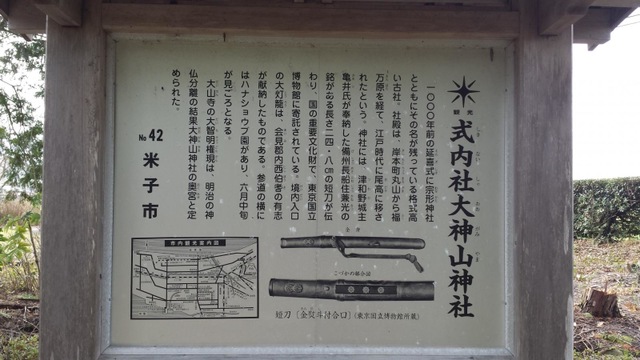 観光
式内社大神山神社
しきないしゃおおがみやま
一〇〇〇年前の延喜式に宗形神社
とともにその名が残っている格式高
い古社。社殿は、岸本町丸山から福
万原を経て、江戸時代に尾高に移さ
れたという。神社には、津和野城主
亀井氏が奉納した備州長船住兼光の
銘がある長さ二四・八㎝の短刀が伝
わり、国の重要文化財で、東京国立
博物館に寄託されている。境内入口
の大灯籠は、会見郡内西伯耆の有志
が献納したものである。参道の横に
はハナショウブ園があり、六月中旬
が見ごろとなる。
大山寺の大智明権現は、明治の神
仏分離の結果大神山神社の奥宮と定
められた。
No 42
米子市
市内観光案内図
全体
こづかの場合図
短刀〔金熨斗付合口〕(東京国立博物館所蔵)